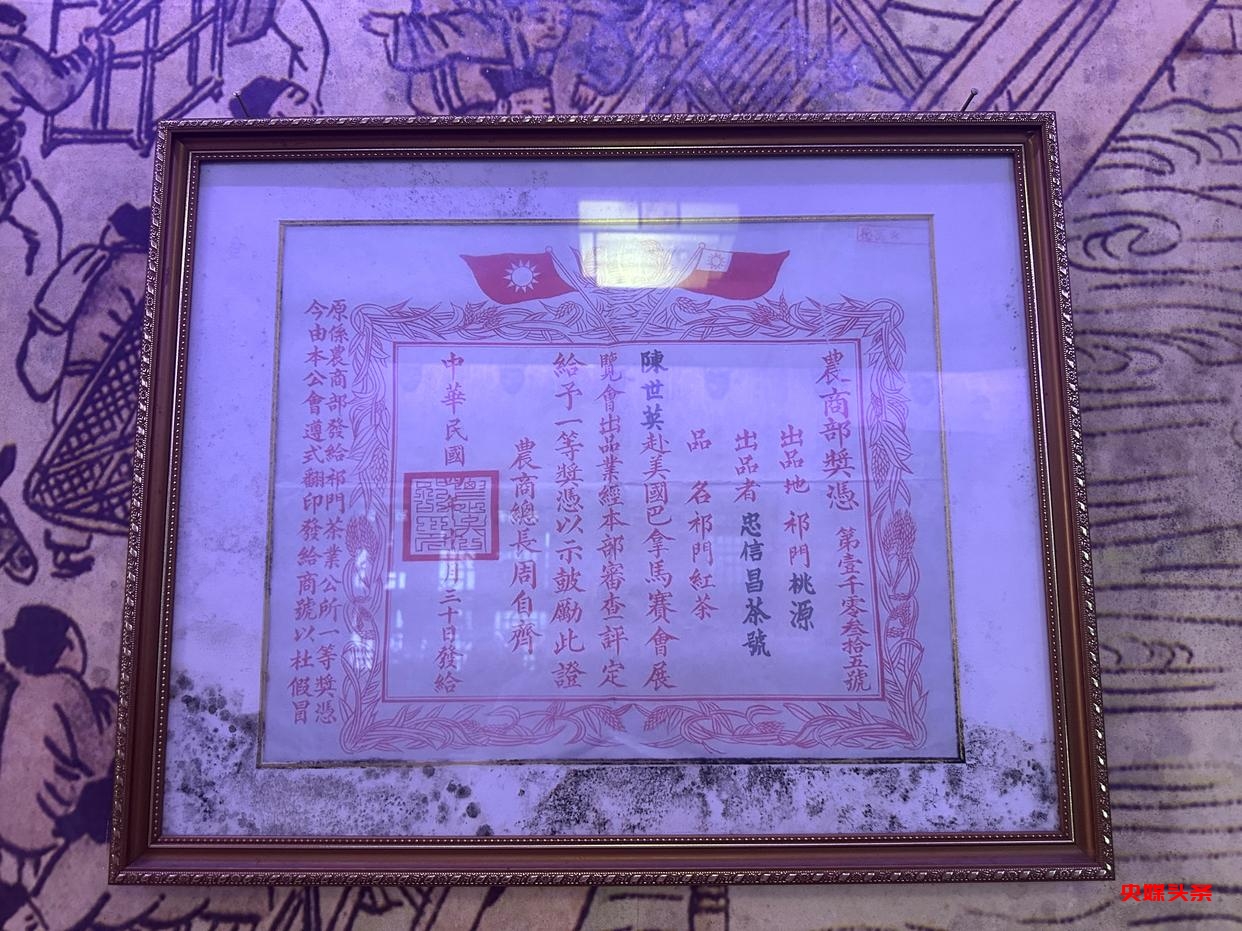 農商部獎憑 第壹千零叁拾五號
出品地 祁門桃源
出品者 忠信昌茶號
品 名 祁門紅茶
陳世英赴美國巴拿馬賽會展
覽會出品業經本部審查評定
給予一等獎憑以示鼓勵此證
農商總長周自齊
中華民國
月三十日發給
原係農商部發給祁門茶業公所一等獎憑
今由本公會遵式翻印發給商號以杜假冒
央媒头条